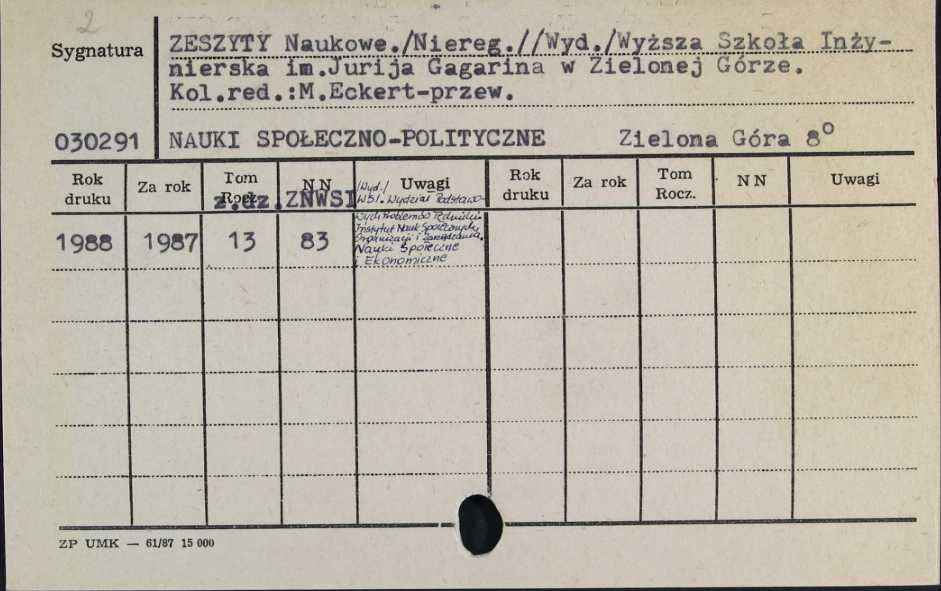 2
Sygnatura
ZESZYTY Naukowe./Niereg.//Wyd./Wyższa Szkoła Inży-
nierska im.Jurija Gagarina w Zielonej Górze.
Kol.red.:M.Eckert-przew.
030291 NAUKI SPOŁECZNO-POLITYCZNE Zielona Góra 8°
Rok druku Za rok Tom Rocz. N N Uwagi Rok druku Za rok Tom Rocz. N N Uwagi
z.dz.ZNWSI
/Wyd./
WSI. Wydział Podstawo-
wych Problemów Techniki.
Instytut Nauk Społecznych,
Organizacji i Zarządzania.
Nauki Społeczne
i Ekonomiczne
1988 1987 13 83
ZP UMK — 61/87 15 000